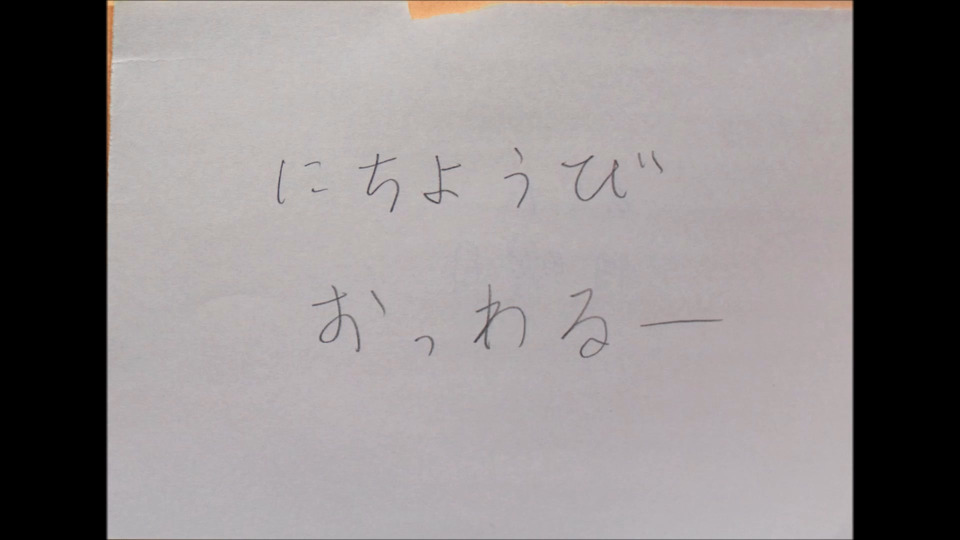 にちようび
おっわるー